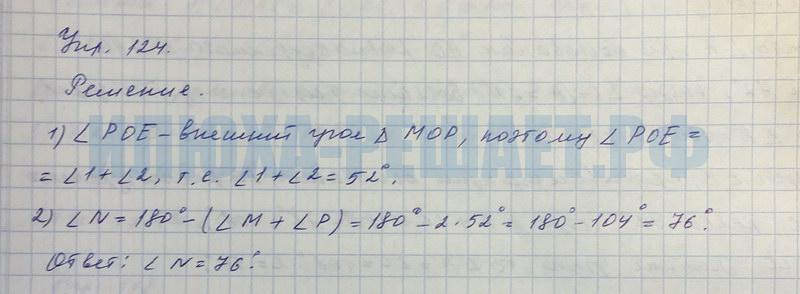 Упр. 124.
Решение.
1) ∠POE – внешний угол Δ MOP, поэтому ∠POE =
= ∠1 + ∠2, т.е. ∠1 + ∠2 = 52°.
2) ∠N = 180° – (∠M + ∠P) = 180° – 2·52° = 180° – 104° = 76°.
Ответ: ∠N = 76°.
ИЛЮХА-РЕШАЕТ.РФ